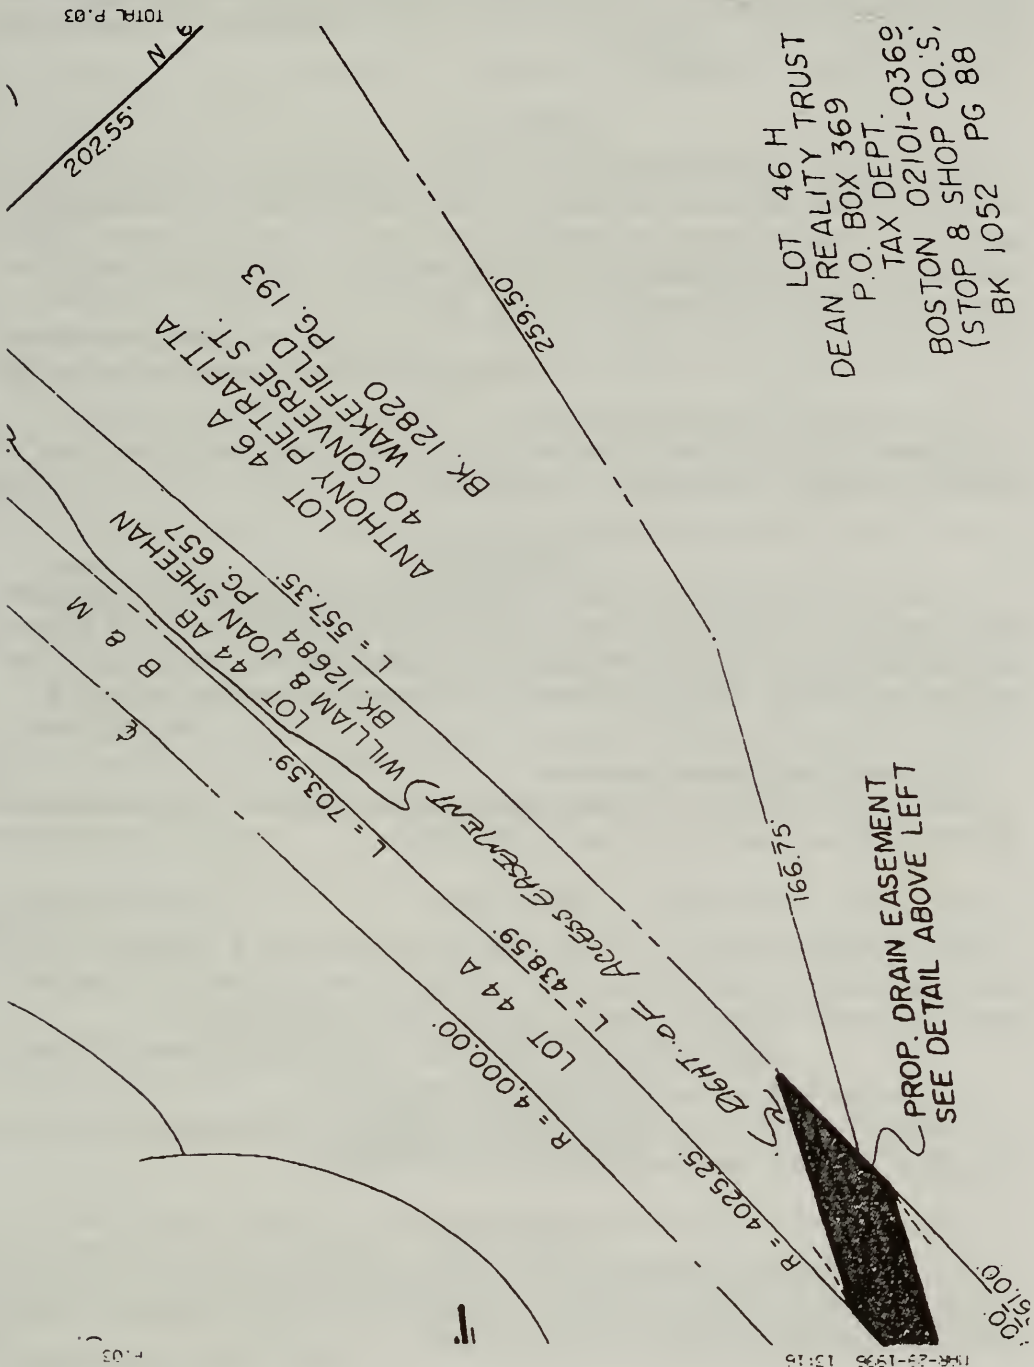 TOTAL P.03
202.55'
N 6
LOT 46 H
DEAN REALITY TRUST
P.O. BOX 369
TAX DEPT.
BOSTON 02101-0369
(STOP & SHOP CO.'S,
BK 1052 PG 88
259.50'
LOT 46 A
ANTHONY PIETRAFITTA
40 CONVERSE ST.
WAKEFIELD
BK. 12820 PG. 193
L = 557.35'
LOT 44 AB
WILLIAM & JOAN SHEEHAN
BK. 12684 PG. 657
B & M
L = 703.59'
RIGHT OF ACCESS EASEMENT
L = 438.59'
LOT 44 A
R = 4,000.00'
R = 4025.25'
166.75'
PROP. DRAIN EASEMENT
SEE DETAIL ABOVE LEFT
61.00'
P.03
13:16